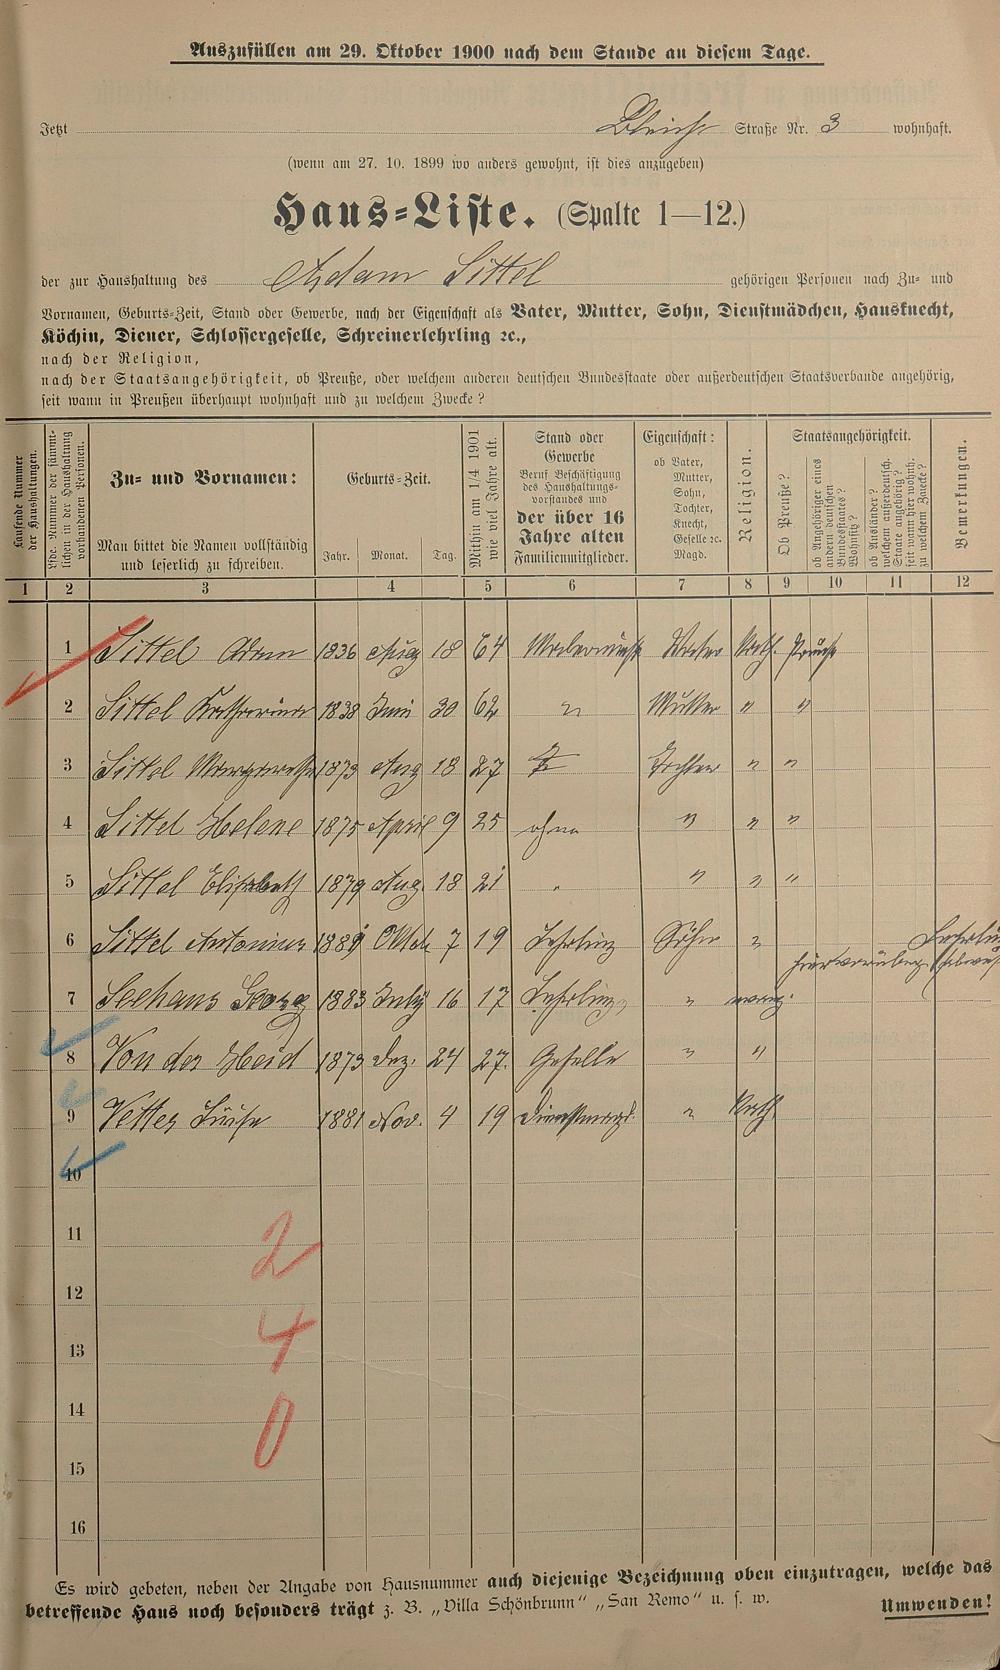 Auszufüllen am 29. Oktober 1900 nach dem Stande an diesem Tage.
Jetzt Bleich Straße Nr. 3 wohnhaft.
(wenn am 27. 10. 1899 wo anders gewohnt, ist dies anzugeben)
Haus-Liste. (Spalte 1—12.)
der zur Haushaltung des Adam Sittel gehörigen Personen nach Zu- und
Vornamen, Geburts-Zeit, Stand oder Gewerbe, nach der Eigenschaft als Vater, Mutter, Sohn, Dienstmädchen, Hausknecht,
Köchin, Diener, Schlossergeselle, Schreinerlehrling ꝛc.,
nach der Religion,
nach der Staatsangehörigkeit, ob Preuße, oder welchem anderen deutschen Bundesstaate oder außerdeutschen Staatsverbande angehörig,
seit wann in Preußen überhaupt wohnhaft und zu welchem Zwecke?
Laufende Nummer
der Haushaltungen.
Lfde. Nummer der sämmt-
lichen in der Haushaltung
vorhandenen Personen.
Zu- und Vornamen:
Man bittet die Namen vollständig
und leserlich zu schreiben.
Geburts-Zeit.
Jahr. Monat. Tag.
Mithin am 1/4 1901
wie viel Jahre alt.
Stand oder
Gewerbe
Beruf Beschäftigung
des Haushaltungs-
vorstandes und
der über 16
Jahre alten
Familienmitglieder.
Eigenschaft:
ob Vater,
Mutter,
Sohn,
Tochter,
Knecht,
Geselle ꝛc.
Magd.
Religion.
Staatsangehörigkeit.
Ob Preuße?
ob Angehöriger eines
andern deutschen
Bundesstaates?
Wohnsitz?
ob Ausländer?
welchem außerdeutsch.
Staate angehörig?
seit wann hier wohnh.
zu welchem Zwecke?
Bemerkungen.
1 2 3 4 5 6 7 8 9 10 11 12
1 Sittel Adam 1836 Aug 18 64 Vater Kath. Preuße
2 Sittel Katharina 1838 Juni 30 62 " Mutter " "
3 Sittel Margaretha 1873 Aug 18 27 Tochter " "
4 Sittel Helene 1875 April 9 25 ohne " " "
5 Sittel Elisabeth 1879 Aug. 18 21 " " " "
6 Sittel Antonius 1881 Oktob. 7 19 Lehrling Sohn "
7 Seehaus Georg 1883 July 16 17 Lehrling " evang.
8 Von der Heid 1873 Dez. 24 27. Geselle " "
9 Vetter Luise 1881 Nov. 4 19 Dienstmagd. " Kath.
10
11
2
12
4
13
14
0
15
16
Es wird gebeten, neben der Angabe von Hausnummer auch diejenige Bezeichnung oben einzutragen, welche das
betreffende Haus noch besonders trägt z. B. „Villa Schönbrunn“ „San Remo“ u. s. w.
Umwenden!